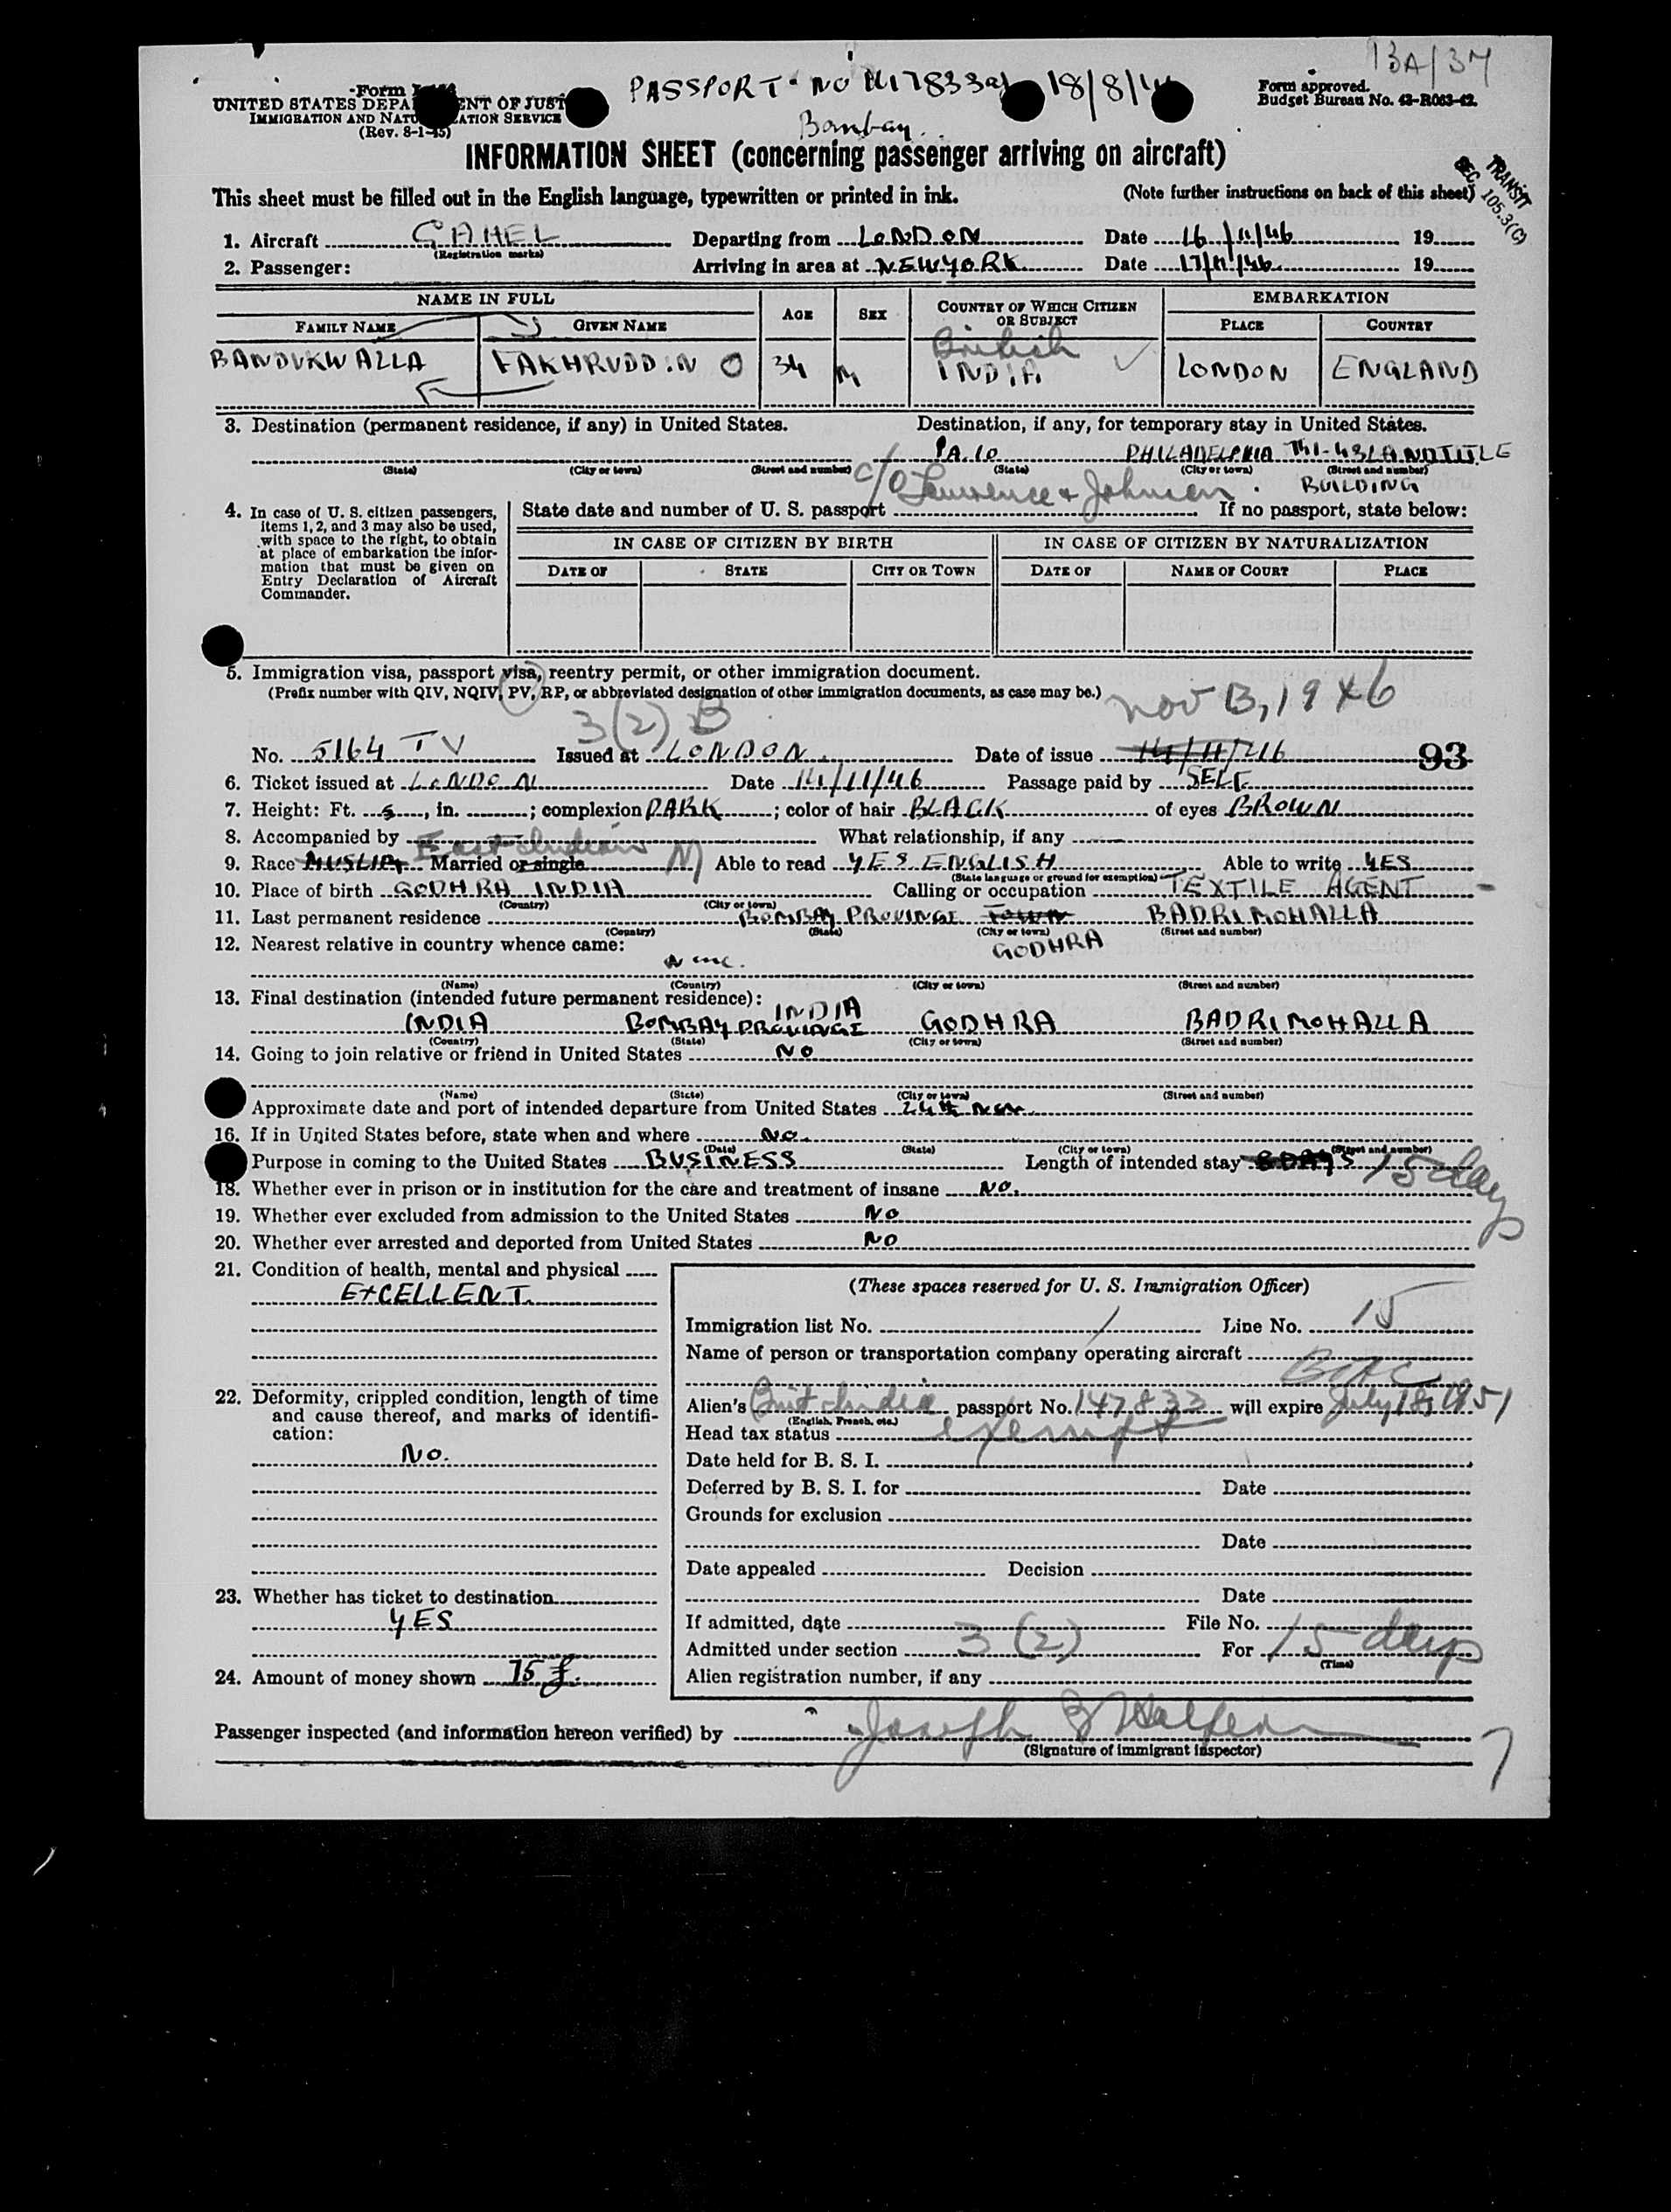 13A/37
Form
UNITED STATES DEPA ENT OF JUST
IMMIGRATION AND NATU ATION SERVICE
(Rev. 8-1-45)
PASSPORT NO 18/8/4
Bombay
Form approved.
Budget Bureau No. 43-R063-42.
INFORMATION SHEET (concerning passenger arriving on aircraft)
TRANSIT
SEC. 105.3(C)
This sheet must be filled out in the English language, typewritten or printed in ink. (Note further instructions on back of this sheet)
1. Aircraft GAHEL Departing from LONDON Date 16/11/46 19
(Registration marks)
2. Passenger: Arriving in area at NEWYORK Date 17/11/46 19
NAME IN FULL AGE SEX COUNTRY OF WHICH CITIZEN OR SUBJECT EMBARKATION
FAMILY NAME GIVEN NAME PLACE COUNTRY
British
BANDUKWALLA FAKHRUDDIN O 34 M INDIA LONDON ENGLAND
3. Destination (permanent residence, if any) in United States. Destination, if any, for temporary stay in United States.
PHILADELPHIA LANDTITLE
(State) (City or town) (Street and number) (State) (City or town) (Street and number)
c/o Lawrence & Johnson BUILDING
4. In case of U. S. citizen passengers, items 1, 2, and 3 may also be used, with space to the right, to obtain at place of embarkation the information that must be given on Entry Declaration of Aircraft Commander.
State date and number of U. S. passport If no passport, state below:
IN CASE OF CITIZEN BY BIRTH IN CASE OF CITIZEN BY NATURALIZATION
DATE OF STATE CITY OR TOWN DATE OF NAME OF COURT PLACE
5. Immigration visa, passport visa, reentry permit, or other immigration document.
(Prefix number with QIV, NQIV, PV, RP, or abbreviated designation of other immigration documents, as case may be.)
3(2) B Nov 13, 1946
No. 5164 TV Issued at LONDON Date of issue 14/11/46 93
6. Ticket issued at LONDON Date 14/11/46 Passage paid by SELF
7. Height: Ft. 5, in. ; complexion DARK ; color of hair BLACK of eyes BROWN
8. Accompanied by What relationship, if any
East Indian
9. Race MUSLIM Married or single M Able to read YES ENGLISH Able to write YES
(State language or ground for exemption)
10. Place of birth GODHRA INDIA Calling or occupation TEXTILE AGENT
(Country) (City or town)
11. Last permanent residence BOMBAY PROVINCE TOWN BADRI MOHALLA
(Country) (State) (City or town) (Street and number)
12. Nearest relative in country whence came: GODHRA
None.
(Name) (Country) (City or town) (Street and number)
13. Final destination (intended future permanent residence):
INDIA
INDIA BOMBAY PROVINCE GODHRA BADRI MOHALLA
(Country) (State) (City or town) (Street and number)
14. Going to join relative or friend in United States NO
(Name) (State) (City or town) (Street and number)
Approximate date and port of intended departure from United States 24th Nov.
16. If in United States before, state when and where No.
(Date) (State) (City or town) (Street and number)
Purpose in coming to the United States BUSINESS Length of intended stay 8 DAYS 15 days
18. Whether ever in prison or in institution for the care and treatment of insane NO.
19. Whether ever excluded from admission to the United States No
20. Whether ever arrested and deported from United States NO
21. Condition of health, mental and physical
EXCELLENT.
22. Deformity, crippled condition, length of time and cause thereof, and marks of identification:
No.
23. Whether has ticket to destination
YES
24. Amount of money shown 75 £.
(These spaces reserved for U. S. Immigration Officer)
Immigration list No. 1 Line No. 15
Name of person or transportation company operating aircraft
BOAC
Alien's Brit India passport No. 147833 will expire July 18, 1951
(English, French, etc.)
Head tax status exempt
Date held for B. S. I.
Deferred by B. S. I. for Date
Grounds for exclusion
Date
Date appealed Decision
Date
If admitted, date File No.
Admitted under section 3 (2) For 15 days
(Time)
Alien registration number, if any
Passenger inspected (and information hereon verified) by Joseph Halpern
(Signature of immigrant inspector)
7